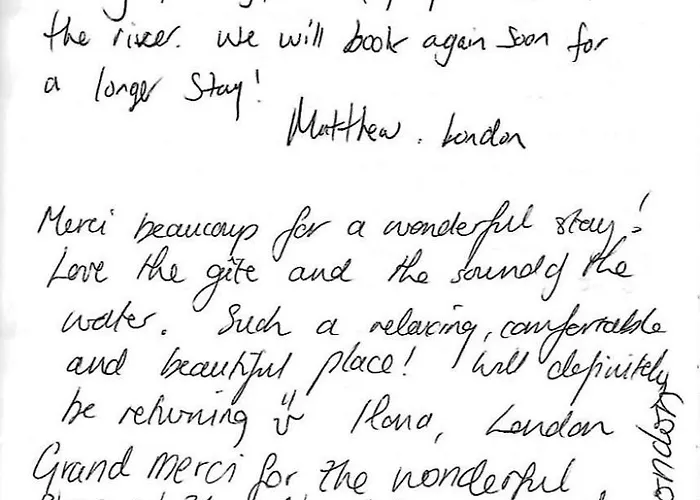 the river. We will book again soon for
a longer stay!
Matthew. London
Merci beaucoup for a wonderful stay!
Love the gîte and the sound of the
water. Such a relaxing, comfortable
and beautiful place! Will definitely
be returning Ilana, London
Grand merci for the wonderful